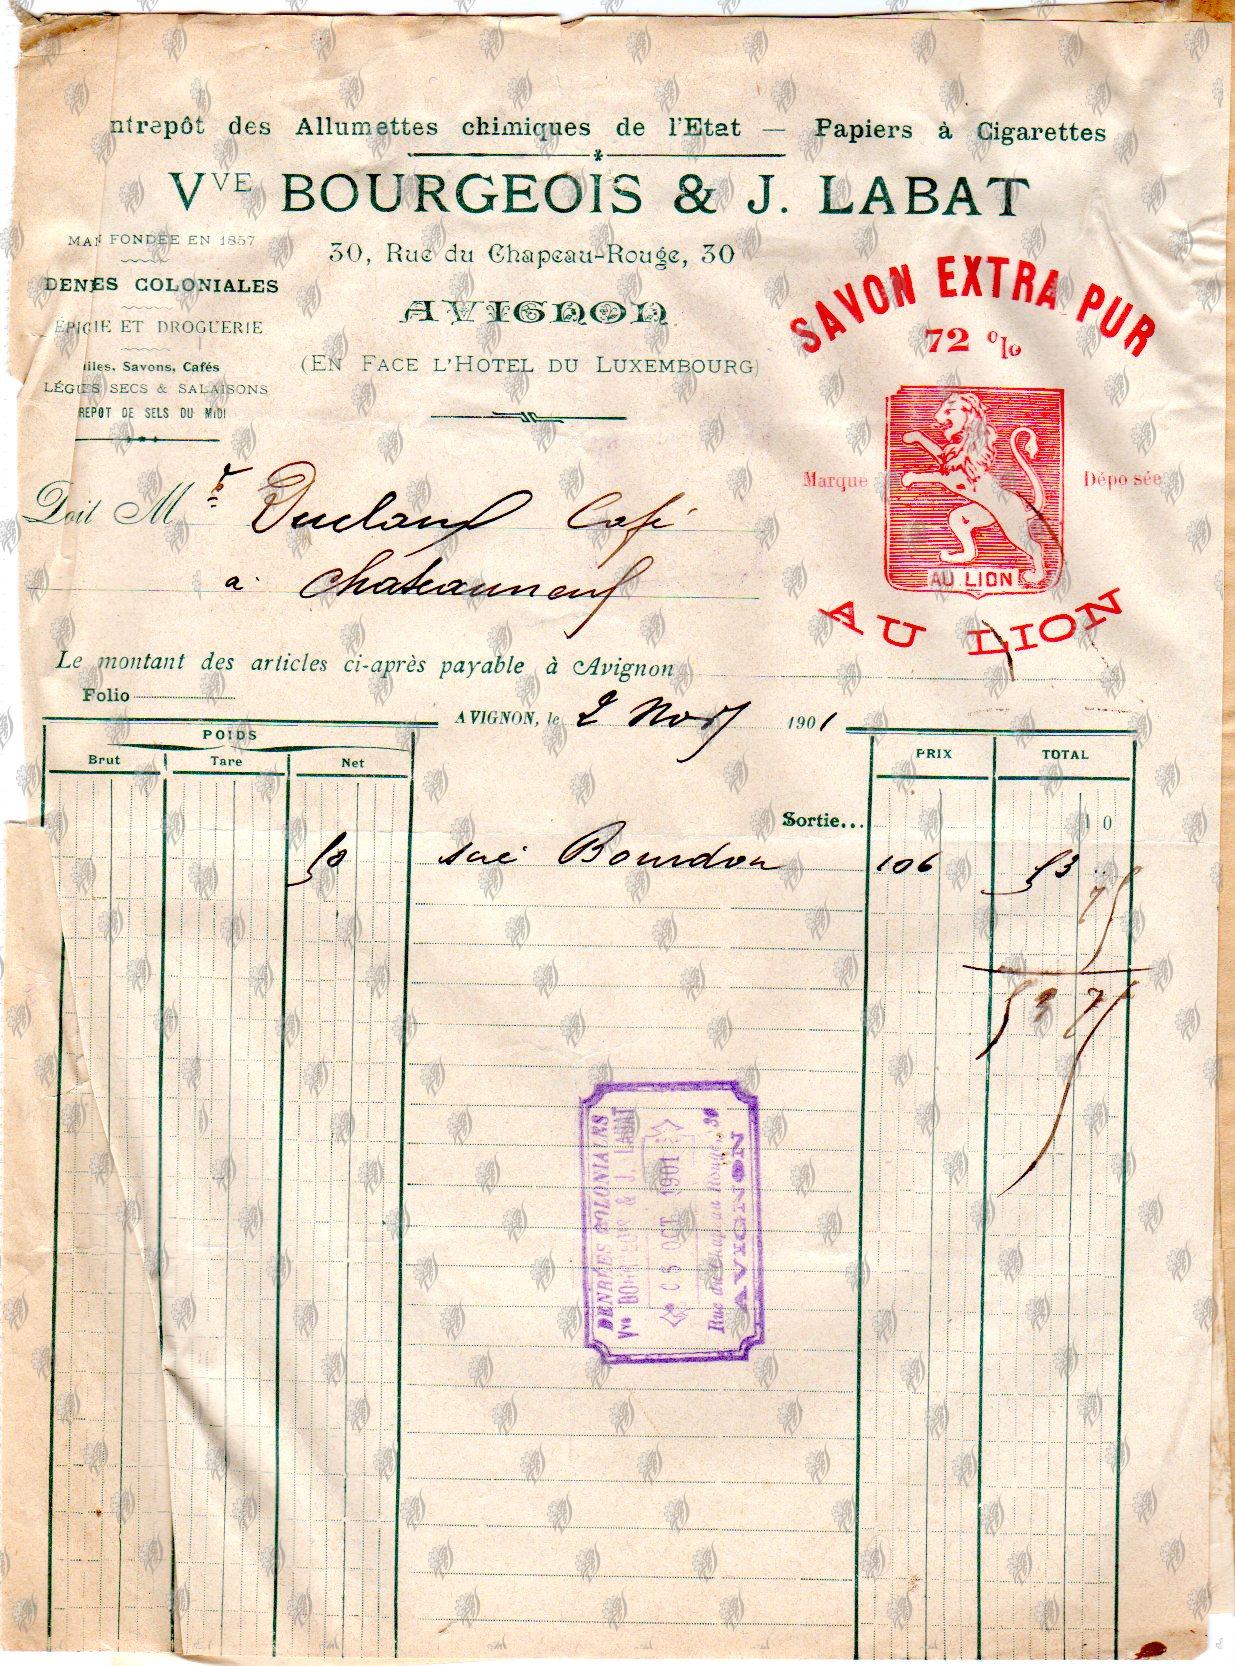 ntrepôt des Allumettes chimiques de l'Etat — Papiers à Cigarettes
Vve BOURGEOIS & J. LABAT
30, Rue du Chapeau-Rouge, 30
AVIGNON
(EN FACE L'HOTEL DU LUXEMBOURG)
FONDÉE EN 1857
COLONIALES
ET DROGUERIE
Savons, Cafés
SECS & SALAISONS
DE SELS DU MIDI
SAVON EXTRA PUR
72 %
Marque Déposée
AU LION
AU LION
Doit Mr Duclaux Café
a Chateauneuf
Le montant des articles ci-après payable à Avignon
Folio
AVIGNON, le 2 Nov 1901
POIDS
Brut Tare Net PRIX TOTAL
Sortie... 10
50 Bourdon 106 53
75
53 75
DENRÉES COLONIALES
Vve BOURGEOIS & J. LABAT
05 OCT 1901
Rue du Chapeau Rouge, 30
AVIGNON